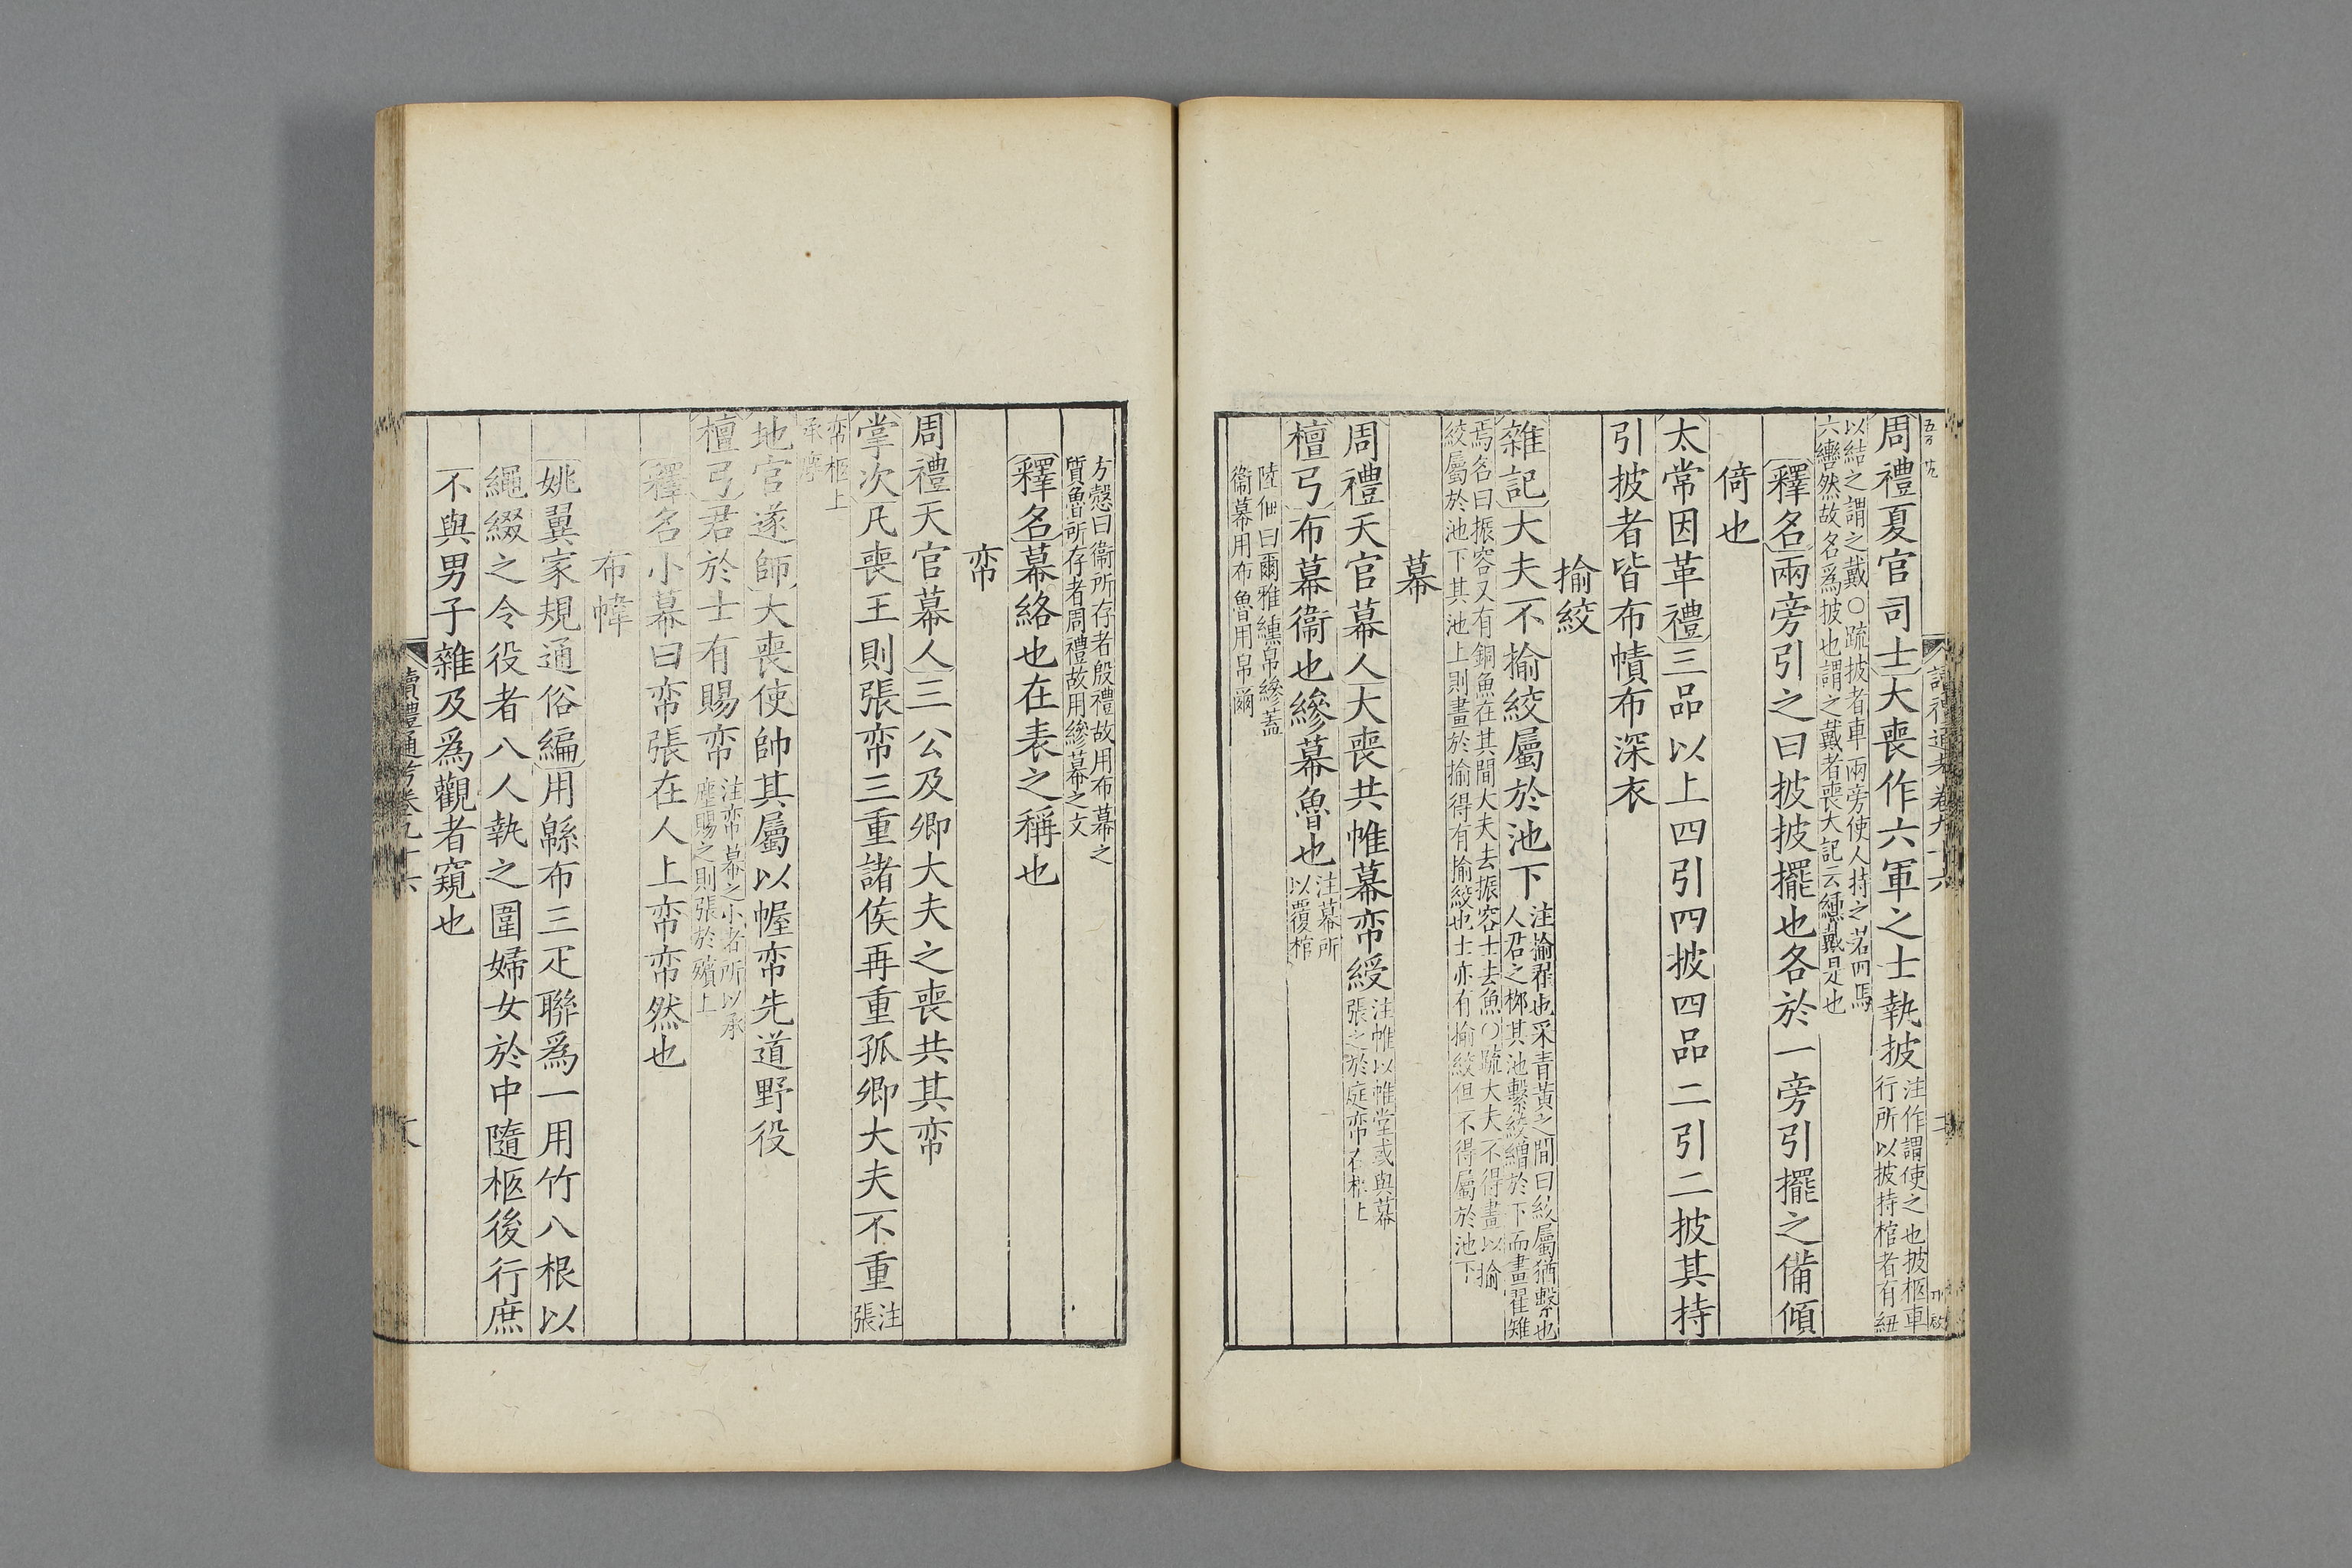 周禮夏官司士大喪作六軍之士執披注作謂使之也披柩車行所以披持棺者有紐
以結之謂之戴○疏披者車兩旁使人持之若四馬六轡然故名爲披也謂之戴者喪大記云纁戴是也
釋名兩旁引之曰披披擺也各於一旁引擺之備傾
倚也
太常因革禮三品以上四引四披四品二引二披其持
引披者皆布幘布深衣
揄絞
雜記大夫不揄絞屬於池下注揄翟也采青黃之間曰絞屬猶繫也人君之栁其池繫絞繒於下而畫翟雉
焉名曰振容又有銅魚在其間大夫去振容士去魚○疏大夫不得畫以揄絞屬於池下其池上則畫於揄得有揄絞也士亦有揄絞但不得屬於池下
幕
周禮天官幕人大喪共帷幕帟綬注帷以帷堂或與幕張之於庭帟在柩上
檀弓布幕衞也縿幕魯也注幕所以覆棺
陸佃曰爾雅纁帛縿蓋衞幕用布魯用帛爾
方慤曰衞所存者殷禮故用布幕之質魯所存者周禮故用縿幕之文
釋名幕絡也在表之稱也
帟
周禮天官幕人三公及卿大夫之喪共其帟
掌次凡喪王則張帟三重諸侯再重孤卿大夫不重注張
帟柩上承塵
地官遂師大喪使帥其屬以幄帟先道野役
檀弓君於士有賜帟注帟幕之小者所以承塵賜之則張於殯上
釋名小幕曰帟張在人上帟帟然也
布幃
姚翼家規通俗編用緜布三疋聯爲一用竹八根以
繩綴之令役者八人執之圍婦女於中隨柩後行庶
不與男子雜及爲觀者窺也
讀禮通考卷九十六